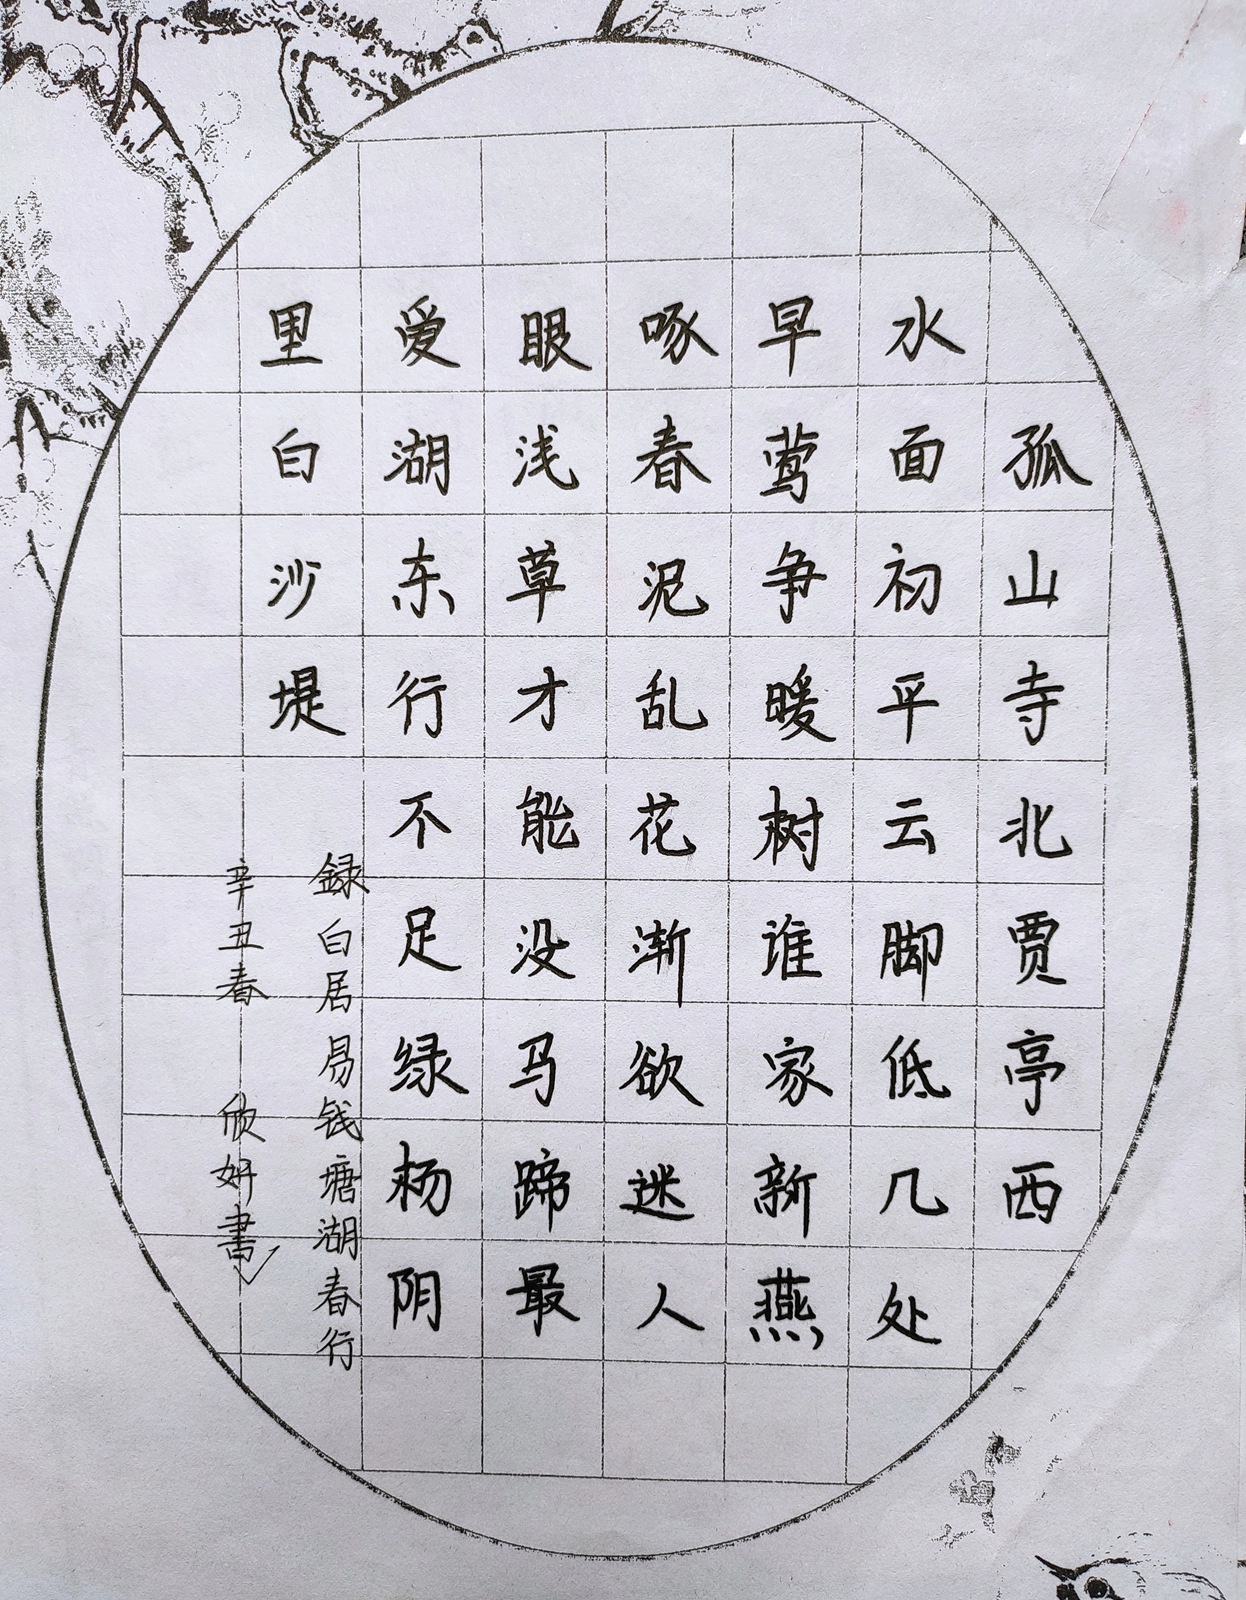 孤山寺北贾亭西
水面初平云脚低几处
早莺争暖树谁家新燕
啄春泥乱花渐欲迷人
眼浅草才能没马蹄最
爱湖东行不足绿杨阴
里白沙堤
録白居易钱塘湖春行
辛丑春 欣妍書